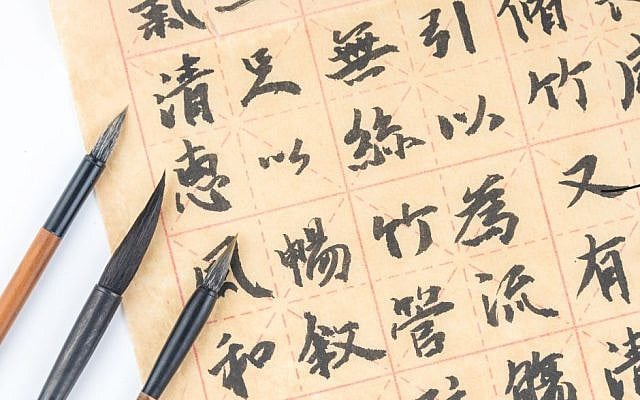 脩竹又有清
引以為流觴
無絲竹管
足以暢敘
氣清惠風和